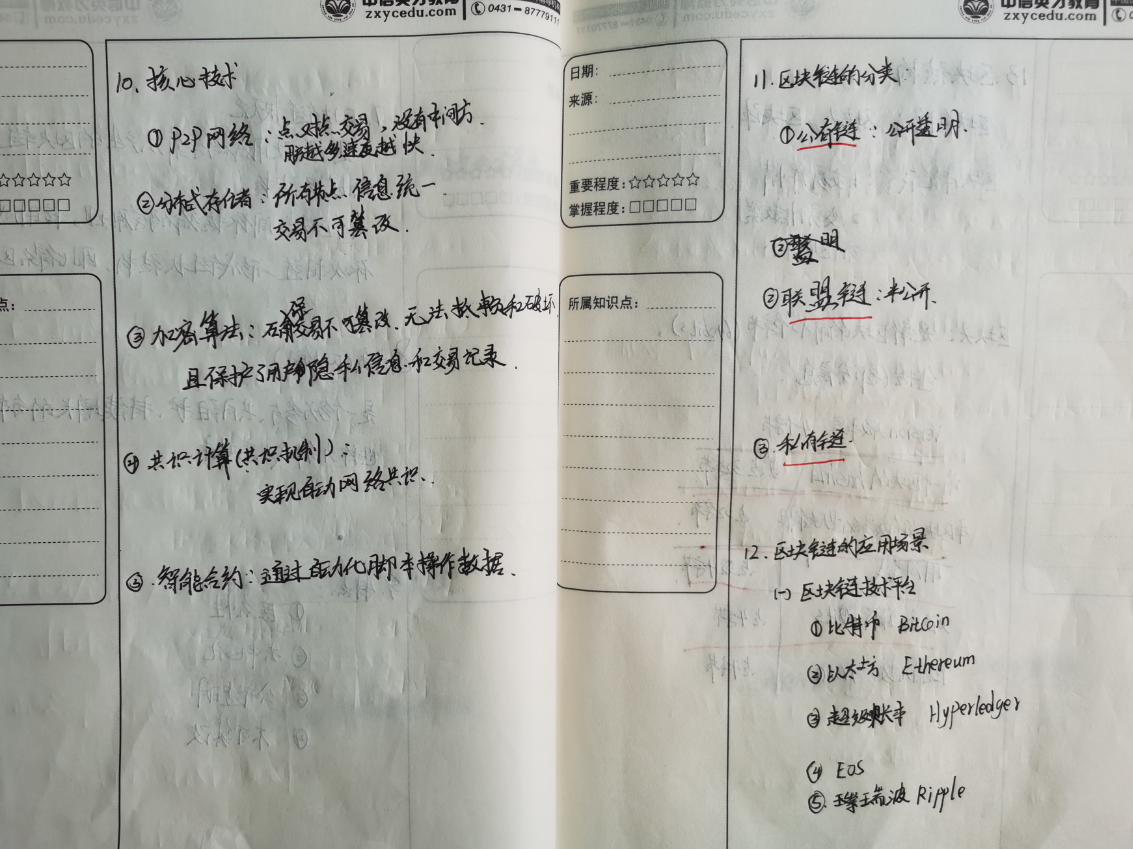 中信英才教育
zxycedu.com
0431-8777911
10. 核心技术
① P2P网络：点对点交易，没有中间方.
越多速度越快.
②分布式存储：所有节点 信息统一
交易不可篡改.
③加密算法：确保交易不可篡改.无法 和破坏
且保护了用户隐私信息和交易记录.
④共识计算(共识机制)：
实现自动网络共识.
⑤.智能合约：通过自动化脚本操作数据.
点：
中信英才教育
zxycedu.com
日期：
来源：
重要程度：☆☆☆☆☆
掌握程度：□□□□□
所属知识点：
11.区块链的分类
①公有链：公开透明.
②联盟链：半公开.
③私有链.
12.区块链的应用场景
(一)区块链技术平台
①比特币 Bitcoin
②以太坊 Ethereum
③超级账本 Hyperledger
④ EOS
⑤.瑞波 Ripple